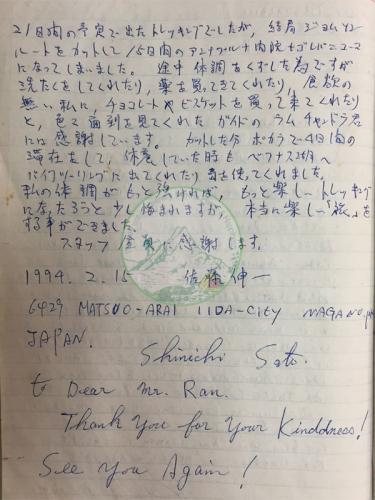 21日間の予定で出たトレッキングでしたが、結局 ジョムソン
ルートをカットして15日間のアンナプルナ内院とゴレパニコース
になってしまいました。 途中 体調をくずした為ですが
洗たくをしてくれたり、薬を買ってきてくれたり、食欲の
無い私に、チョコレートやビスケットを買って来てくれたり
と、色々面到を見てくれた ガイドの ラムチャンドラ君
には感謝しています。 カットした分 ポカラで4日間の
滞在をして、休息していた時も ベグナス湖へ
バイクツーリングに出てくれたり 気を使ってくれました。
私の体調がもっと良ければ、もっと楽しいトレッキング
になったろうと少し悔まれますが、本当に楽しい「旅」を
する事ができました。
スタッフ全員に感謝します。
1994. 2. 15 佐藤伸一
6429 MATSUO-ARAI IIDA-City NAGANO
JAPAN.
Shinichi Sato.
to Dear Mr. Ram.
Thank you for Your Kinddness!
See you Again!